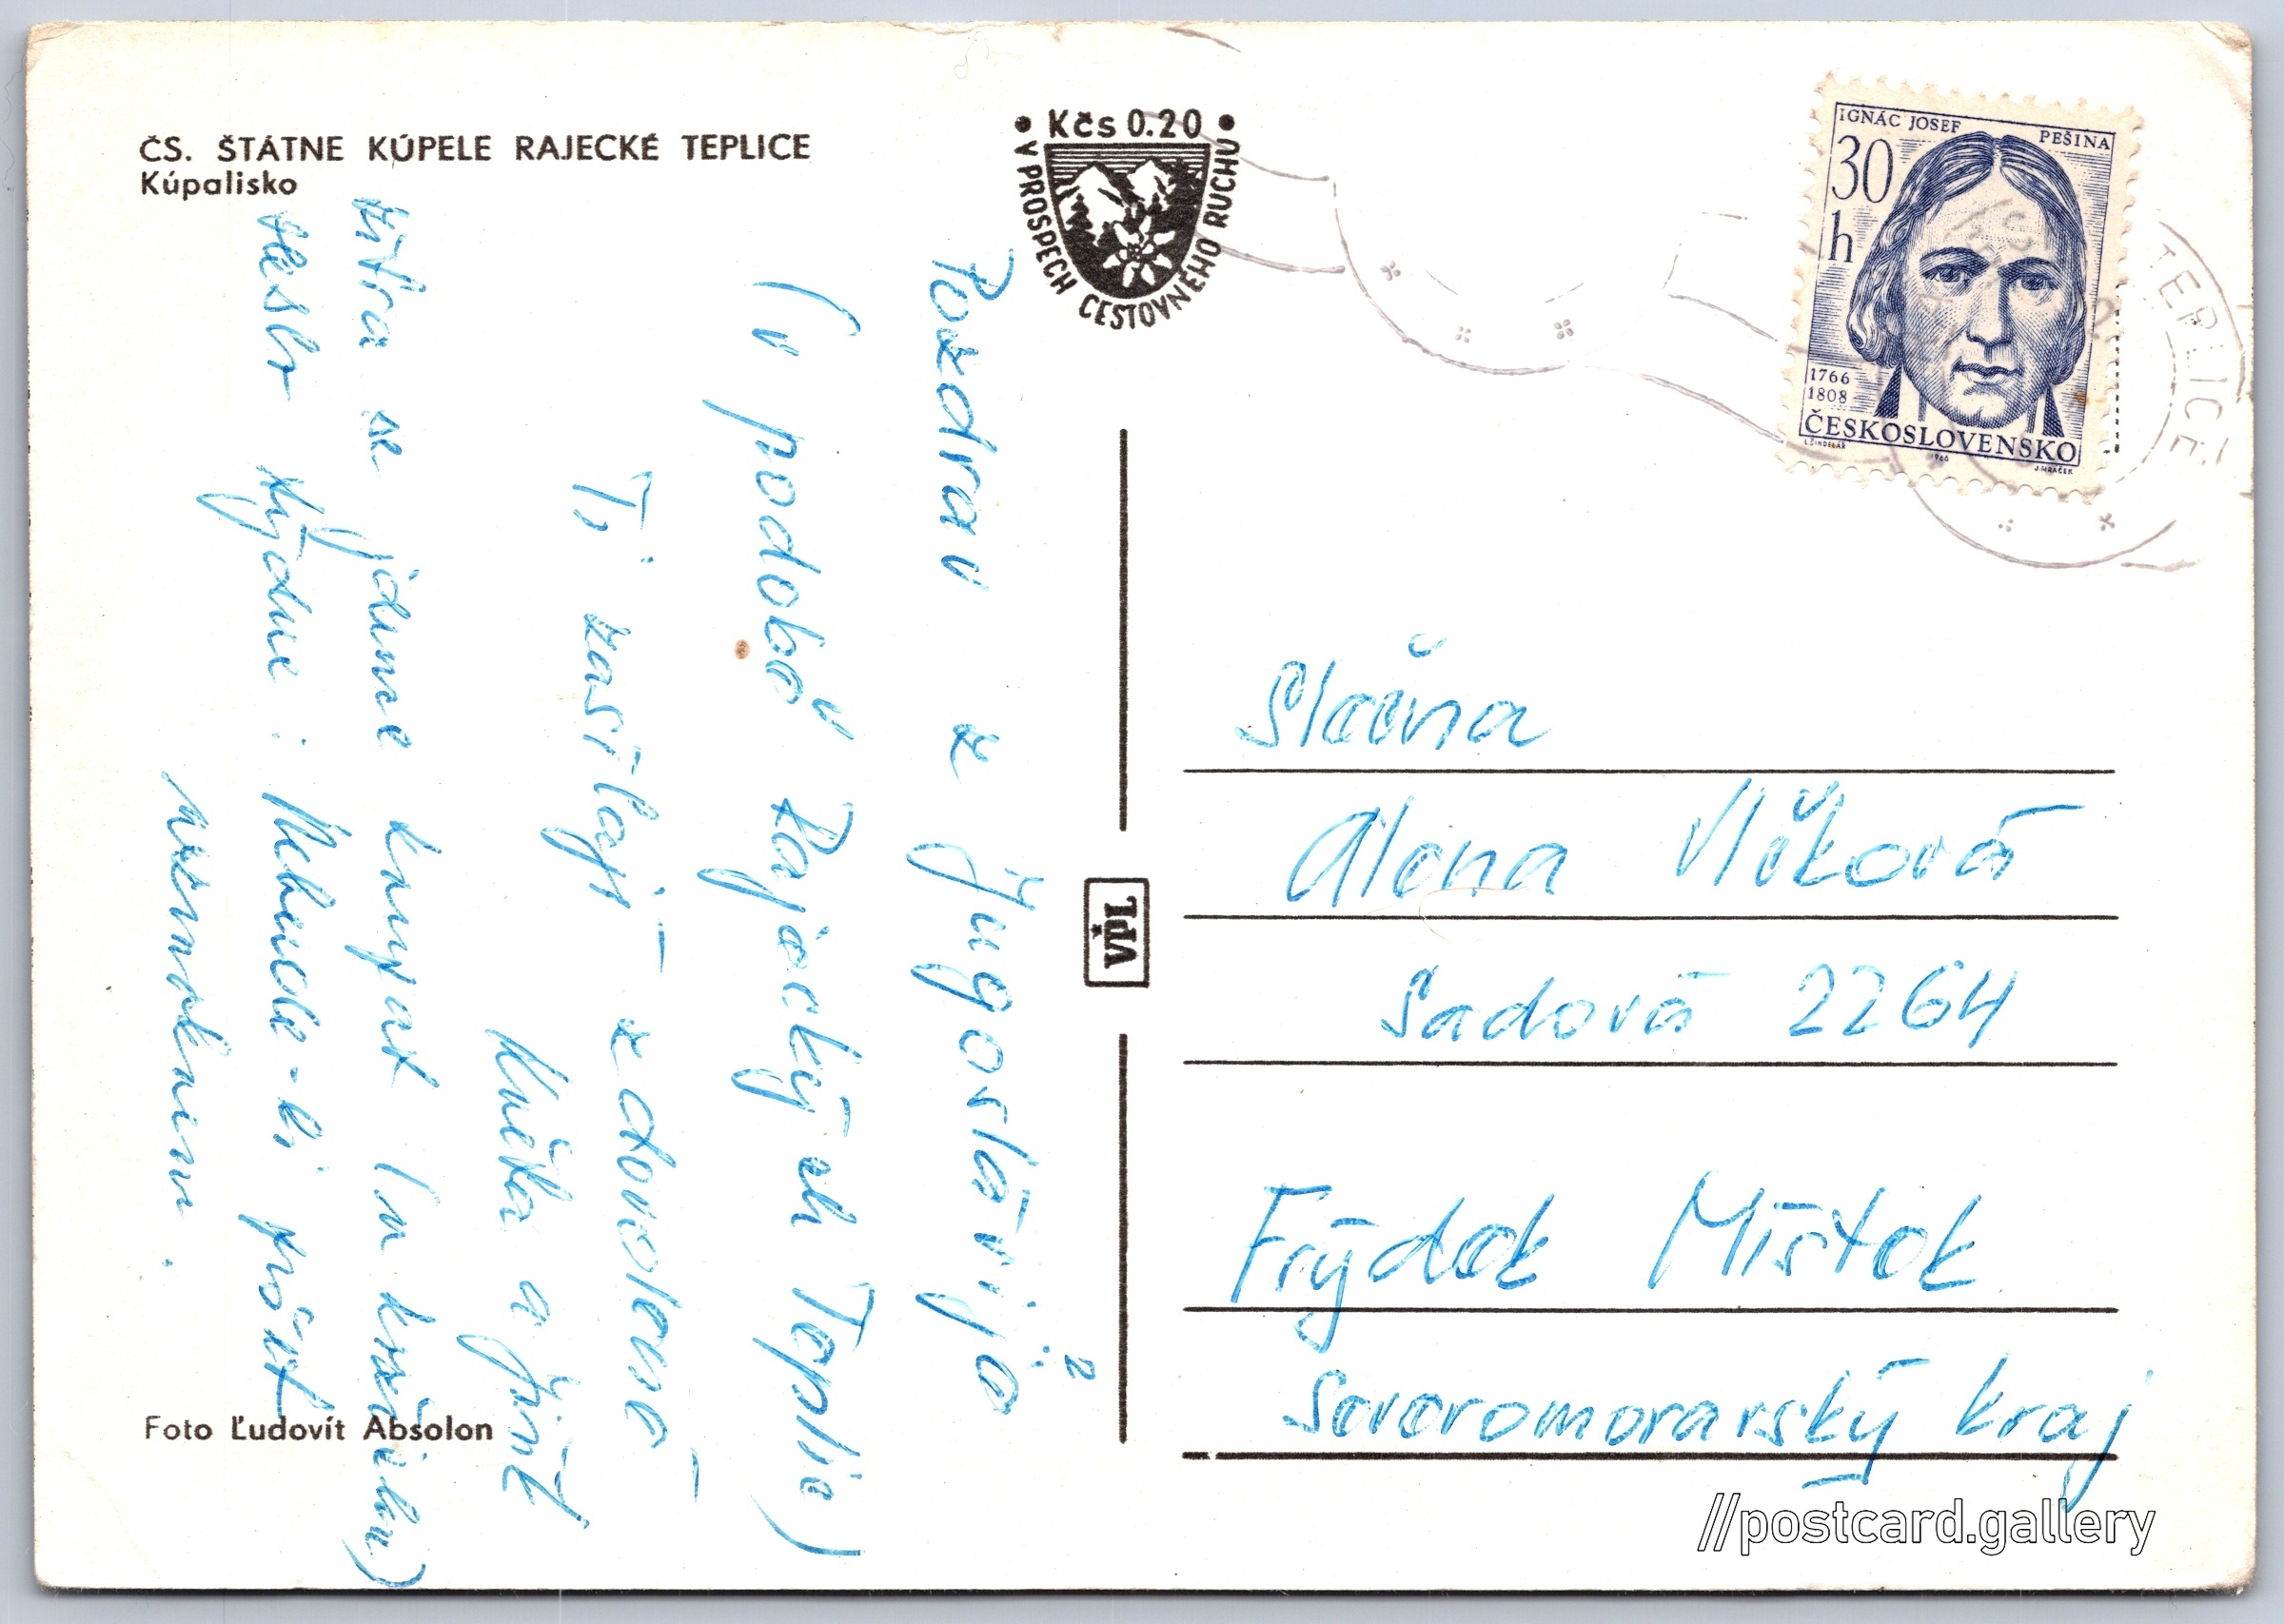 ČS. ŠTÁTNE KÚPELE RAJECKÉ TEPLICE
Kúpalisko
• Kčs 0.20 •
V PROSPECH CESTOVNÉHO RUCHU
IGNÁC JOSEF PEŠINA
30
h
1766
1808
ČESKOSLOVENSKO
L. ŠINDELÁŘ 1966 J. MRÁČEK
TEPLICE
Pozdrav z Jugoslávije
(v podobě Rajeckých Teplic)
Ti zasílají z dovolené
Knéčka a
zítra se jdeme koupat (v
tento týdne: Nebude-li pršet
VPL
Slečna
Alena Vlčková
Sadová 2264
Frýdek Místek
Severomoravský kraj
Foto Ľudovít Absolon
//postcard.gallery